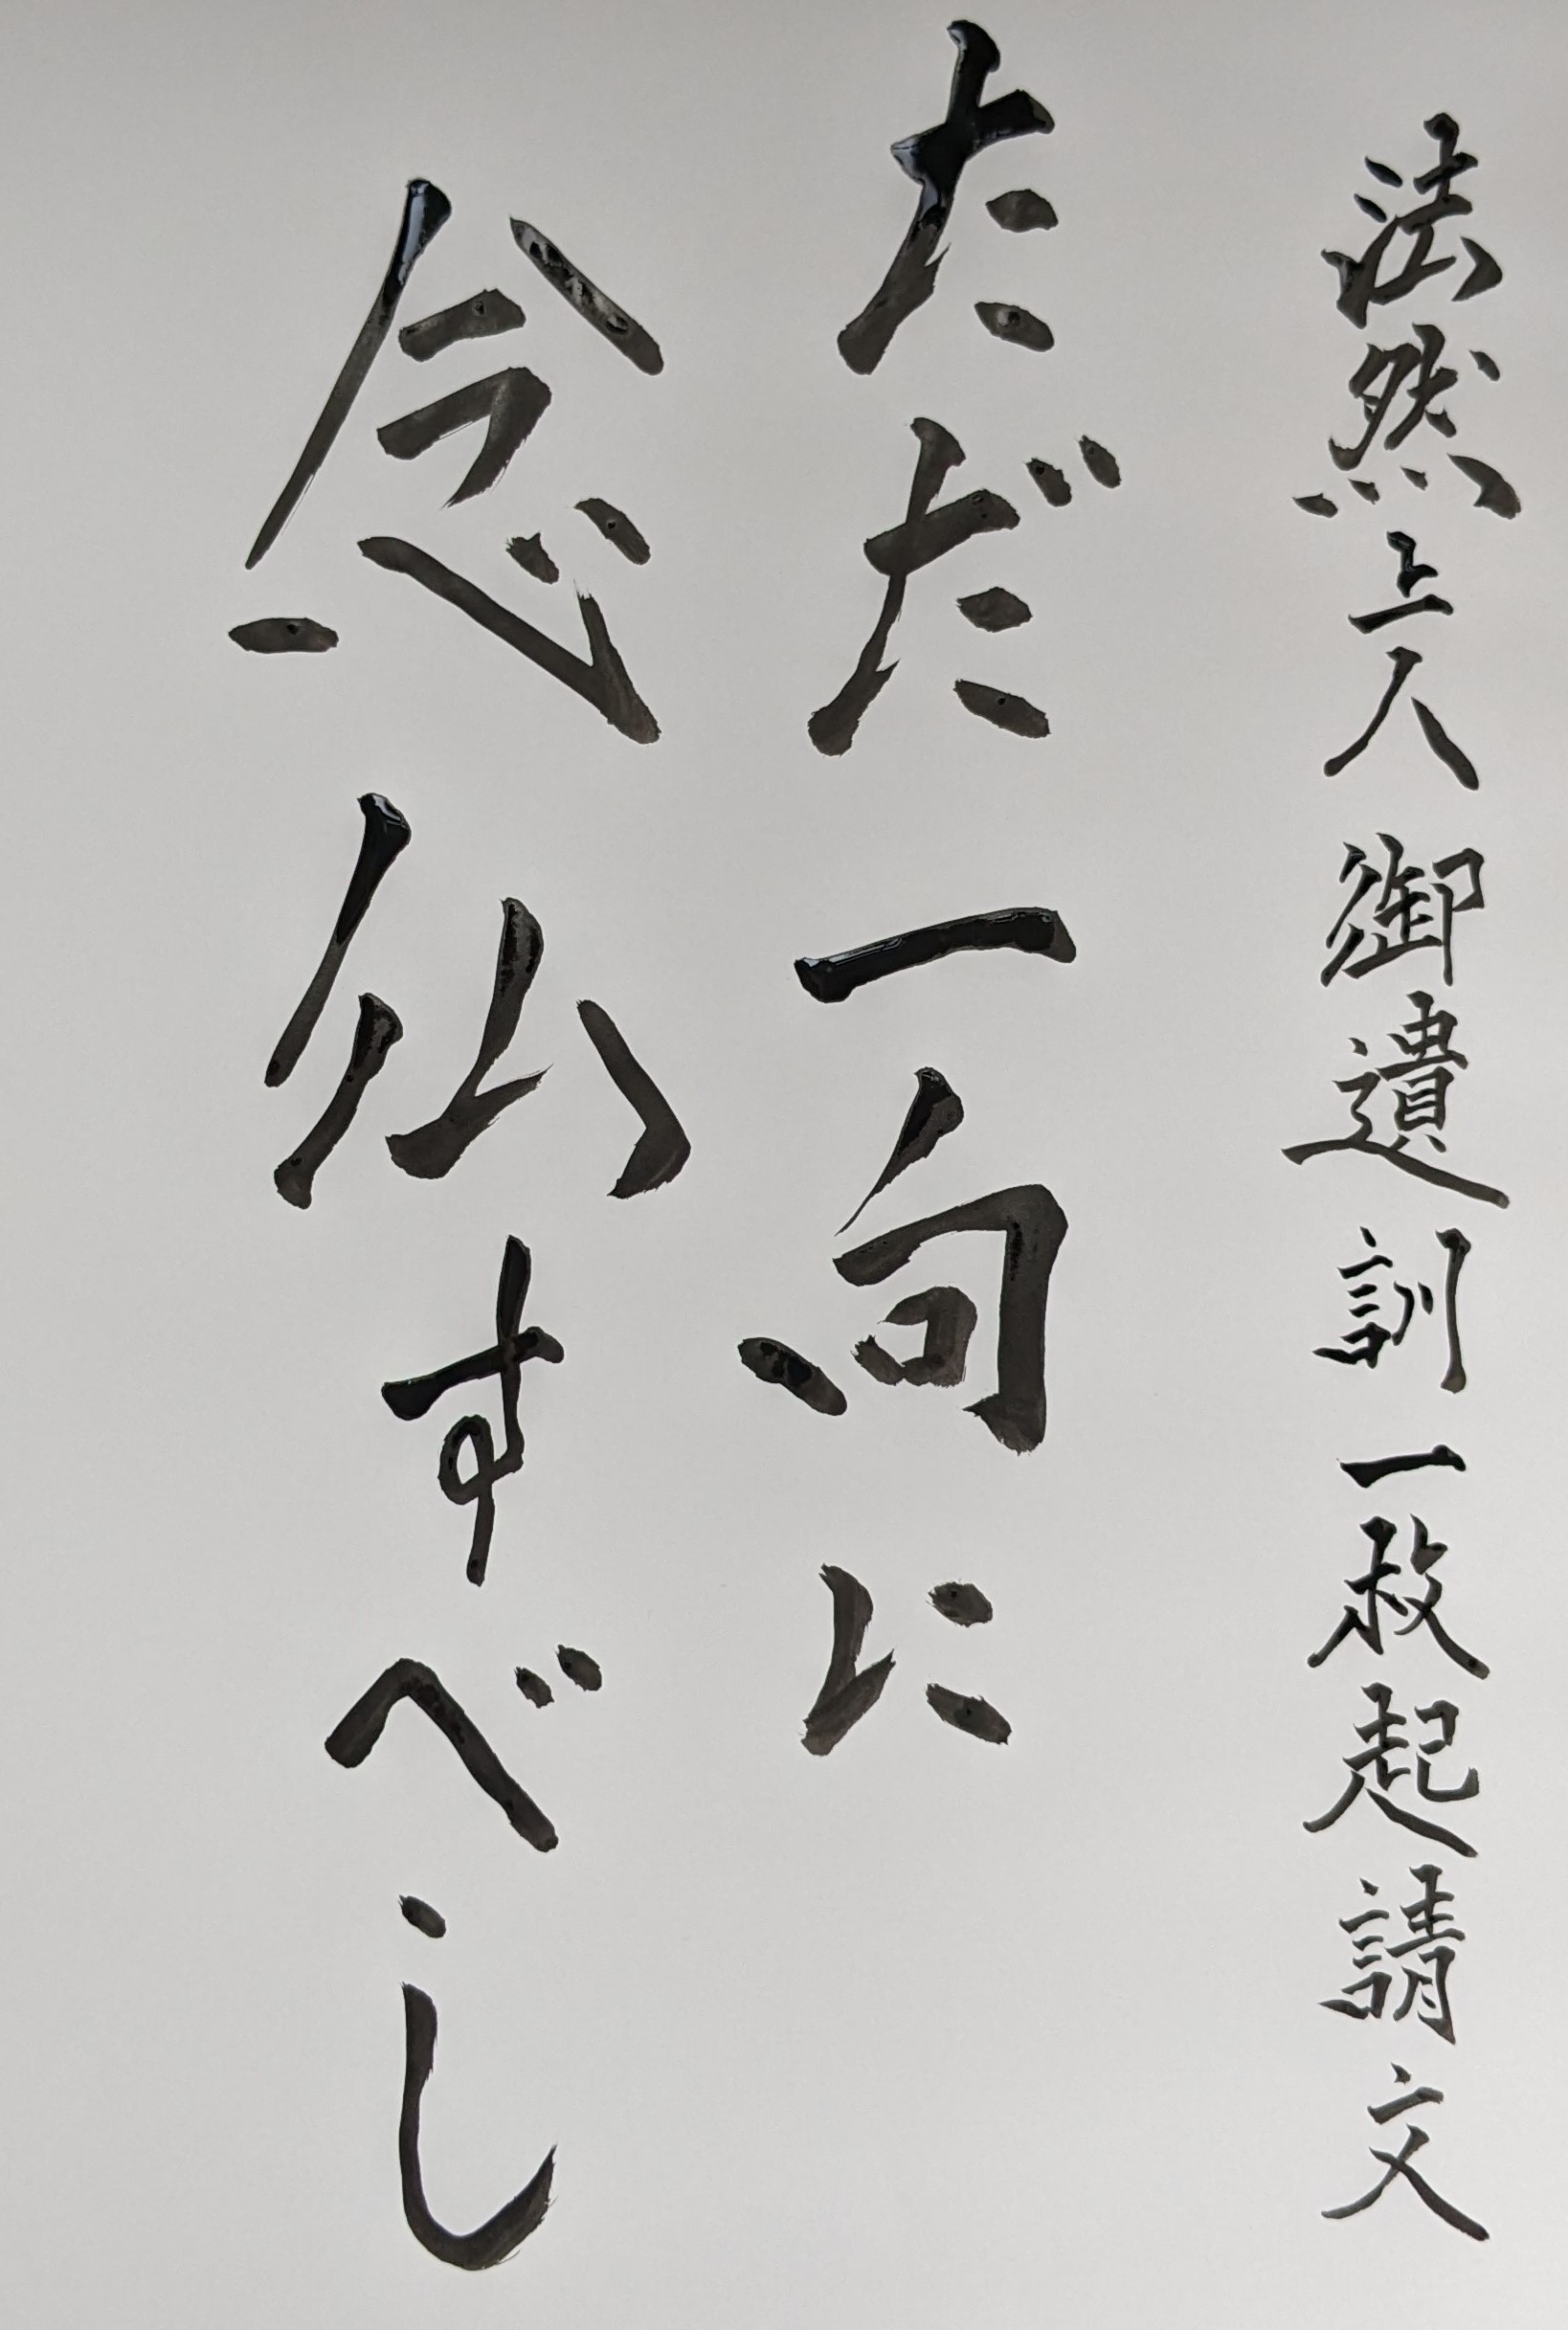 法然上人御遺訓一枚起請文
ただ一向に
念仏すべし